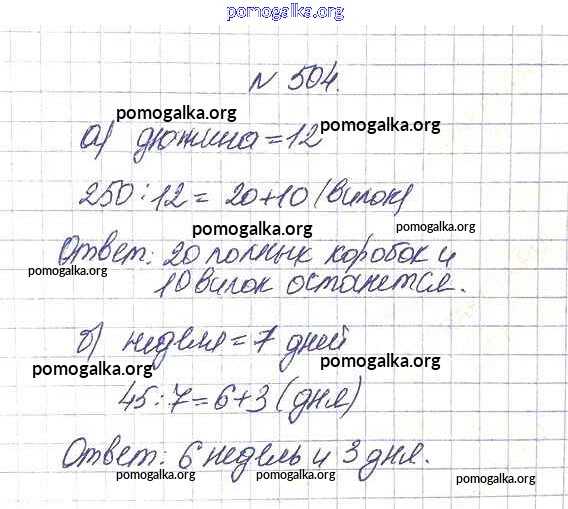 pomogalka.org
N 504.
pomogalka.org pomogalka.org
а) дюжина = 12
250 : 12 = 20 + 10 (вилок)
pomogalka.org pomogalka.org
Ответ: 20 полных коробок и
pomogalka.org pomogalka.org
10 вилок останется.
б) неделя = 7 дней
pomogalka.org pomogalka.org
45 : 7 = 6 + 3 (дня)
Ответ: 6 недель и 3 дня.
pomogalka.org pomogalka.org pomogalka.org